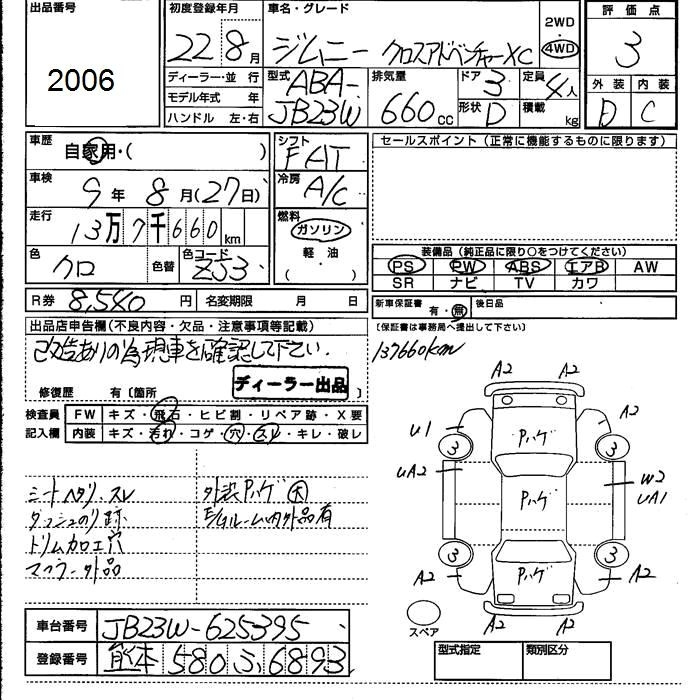 出品番号
2006
初度登録年月
22年8月
車名・グレード
ジムニー クロスアドベンチャーXC
2WD
・
4WD
評価点
3
外装 内装
D C
ディーラー・並行
モデル年式 年
ハンドル 左・右
型式
ABA-
JB23W
排気量
660cc
ドア 3
形状 D
定員 4人
積載 kg
車歴
自家用・( )
車検
9年8月(27日)
走行
13万7千660km
色
クロ
色替
色コード
ZJ3
シフト
FAT
冷房
A/C
燃料
ガソリン
軽・油
( )
セールスポイント(正常に機能するものに限ります)
装備品(純正品に限り○をつけてください)
PS PW ABS エアB AW
SR ナビ TV カワ
R券 8,540円 名変期限 月 日
新車保証書 有・無 後日品
(保証書は事務局へ提出して下さい)
出品店申告欄(不良内容・欠品・注意事項等記載)
改造ありの為現車を確認して下さい.
137660km
ディーラー出品
修復歴 有〔箇所 〕
検査員 FW キズ・飛石・ヒビ割・リペア跡・X要
記入欄 内装 キズ・汚れ・コゲ・穴・スレ・キレ・破レ
シートヘタリ.スレ
外装Pハゲ大
ダッシュのり跡
ルーム内外品有
トリム加工穴
マフラー外品
A2 A2
U1 A2
3 Pハゲ 3
UA2 W2
UA1
Pハゲ
3 Pハゲ 3
A2 A2
A2 A2
スペア
車台番号 JB23W-625395
登録番号 熊本 580 ふ 6893
型式指定 類別区分